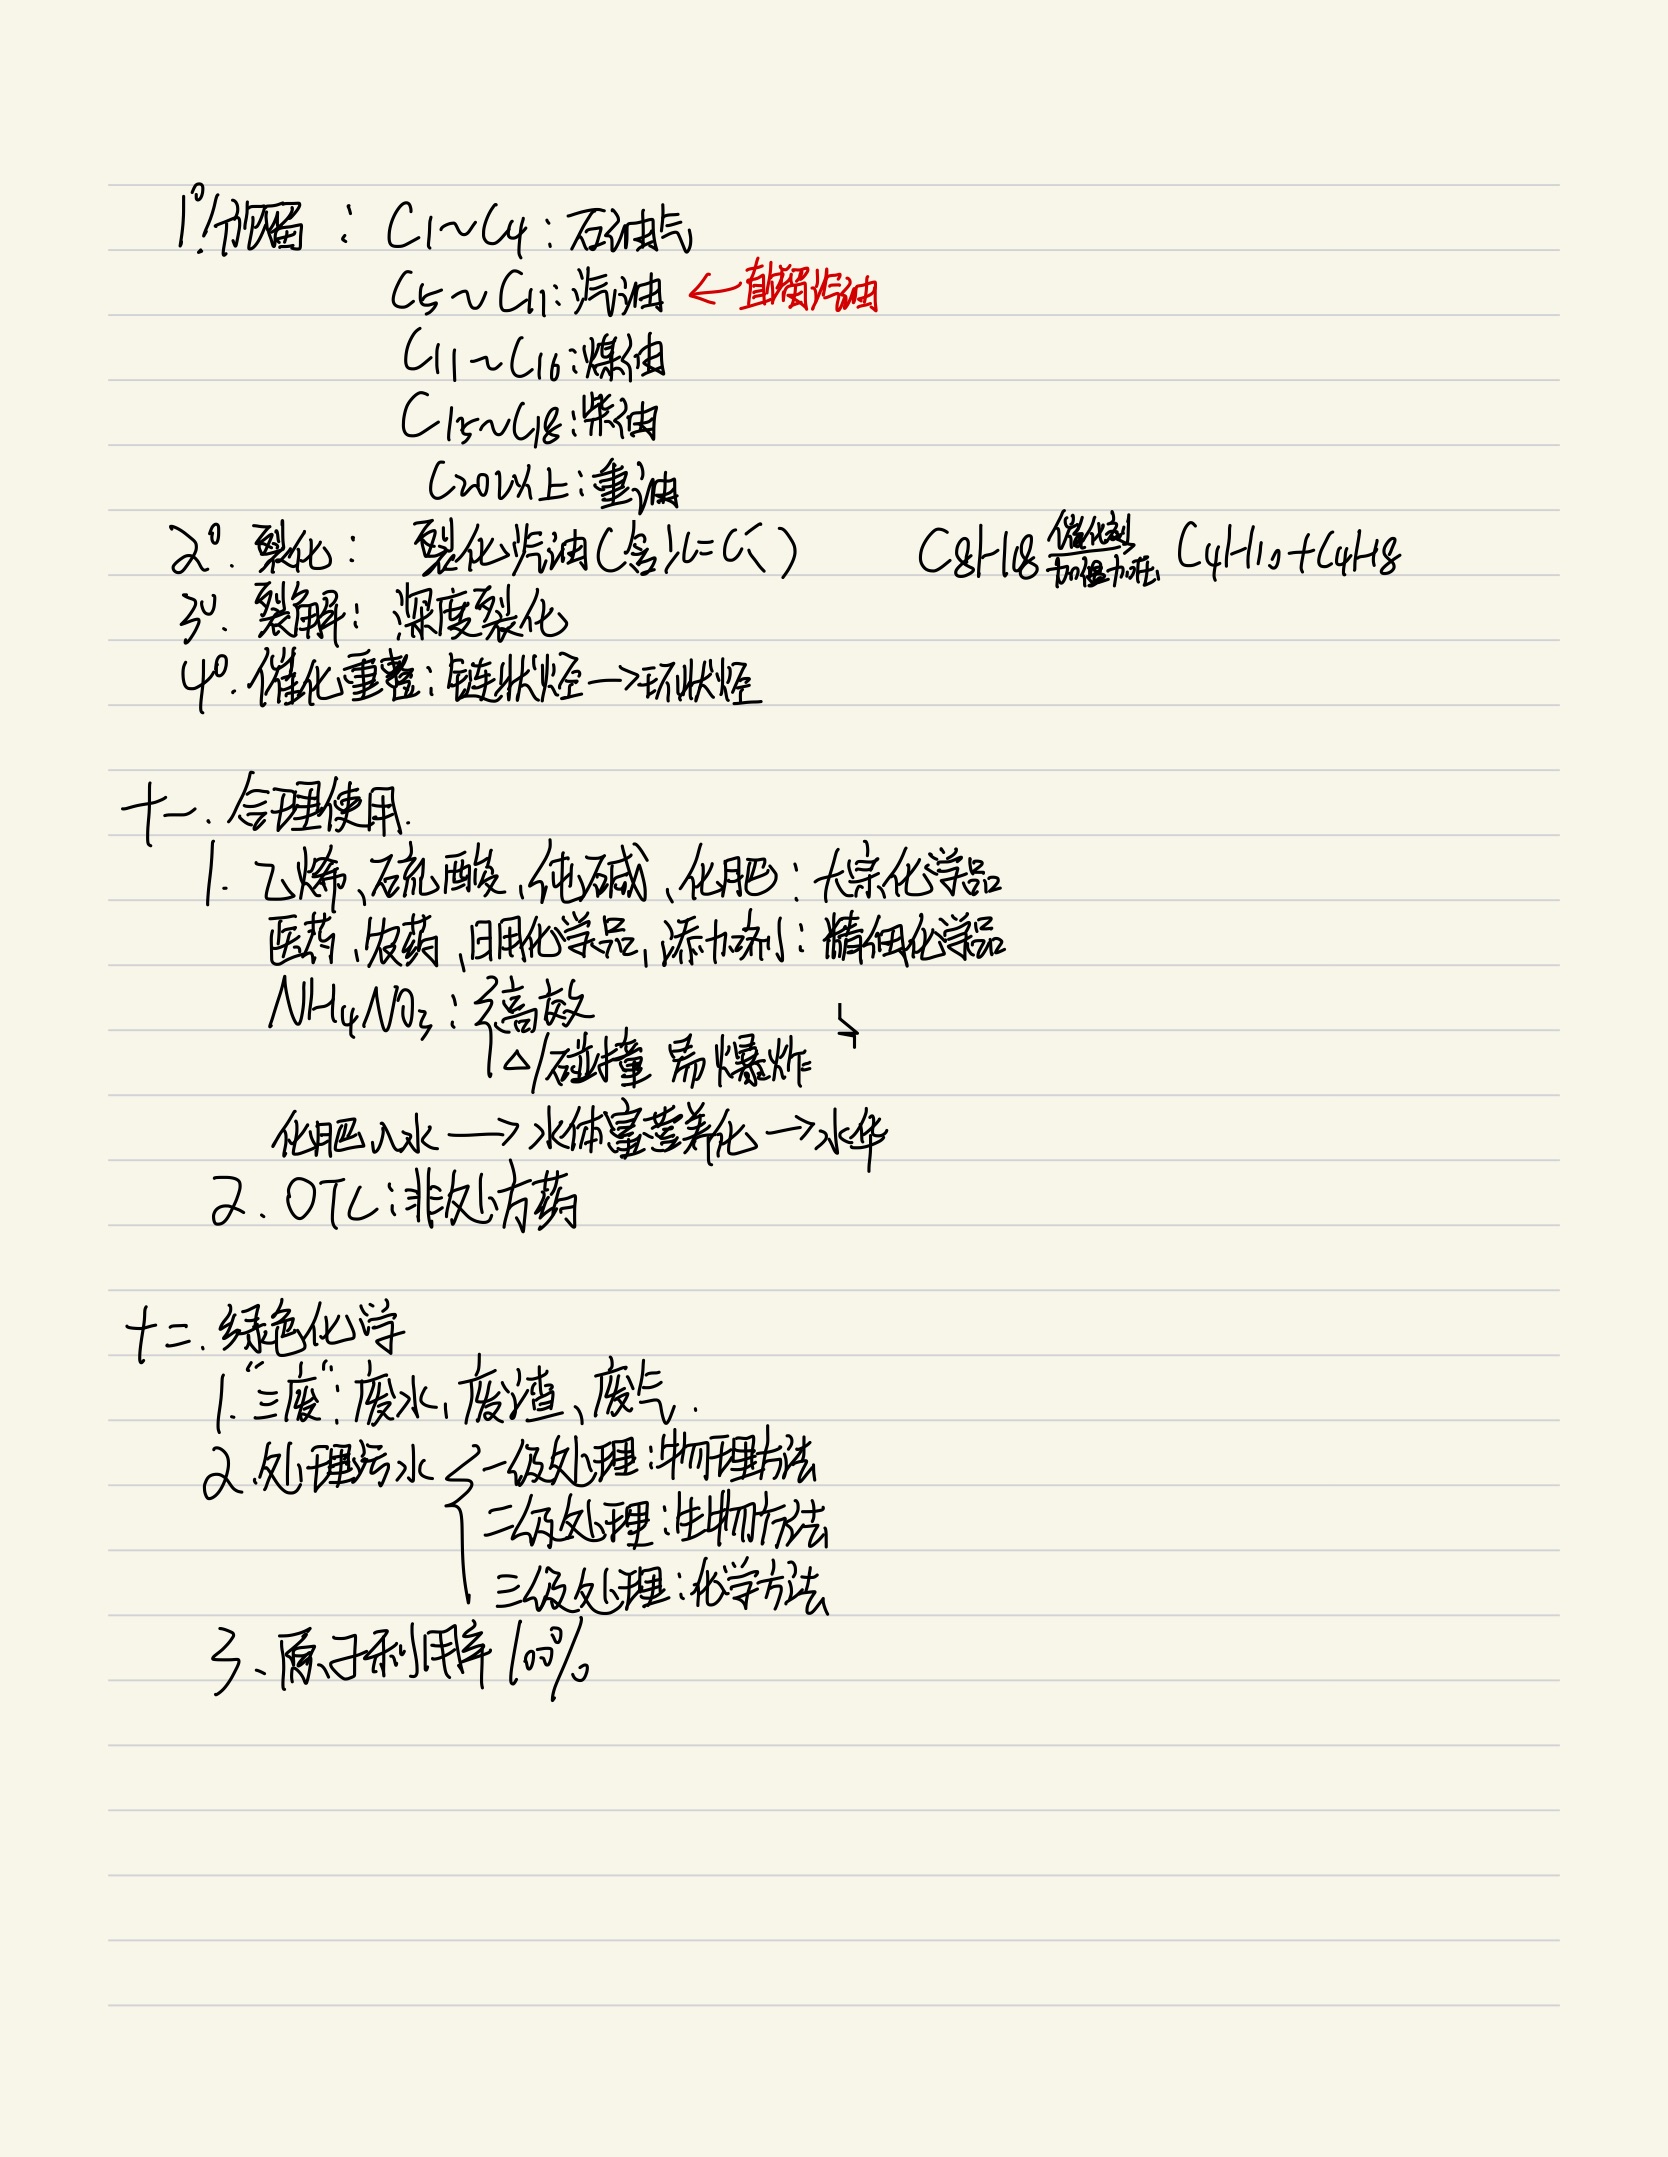 1°.分馏：C1～C4：石油气
C5～C11：汽油 ←直馏汽油
C11～C16：煤油
C15～C18：柴油
C20以上：重油
2°. 裂化： 裂化汽油（含 C=C ） C8H18 催化剂 加温加压 C4H10+C4H8
3°. 裂解： 深度裂化
4°. 催化重整：链状烃→环状烃
十一. 合理使用.
1. 乙烯、硫酸、纯碱、化肥：大宗化学品
医药、农药、日用化学品、添加剂：精细化学品
NH4NO3：{高效
△/碰撞 易爆炸
化肥入水→水体富营养化→水华
2. OTC：非处方药
十二. 绿色化学
1. “三废”：废水、废渣、废气.
2. 处理污水 {一级处理：物理方法
二级处理：生物方法
三级处理：化学方法
3、原子利用率100%